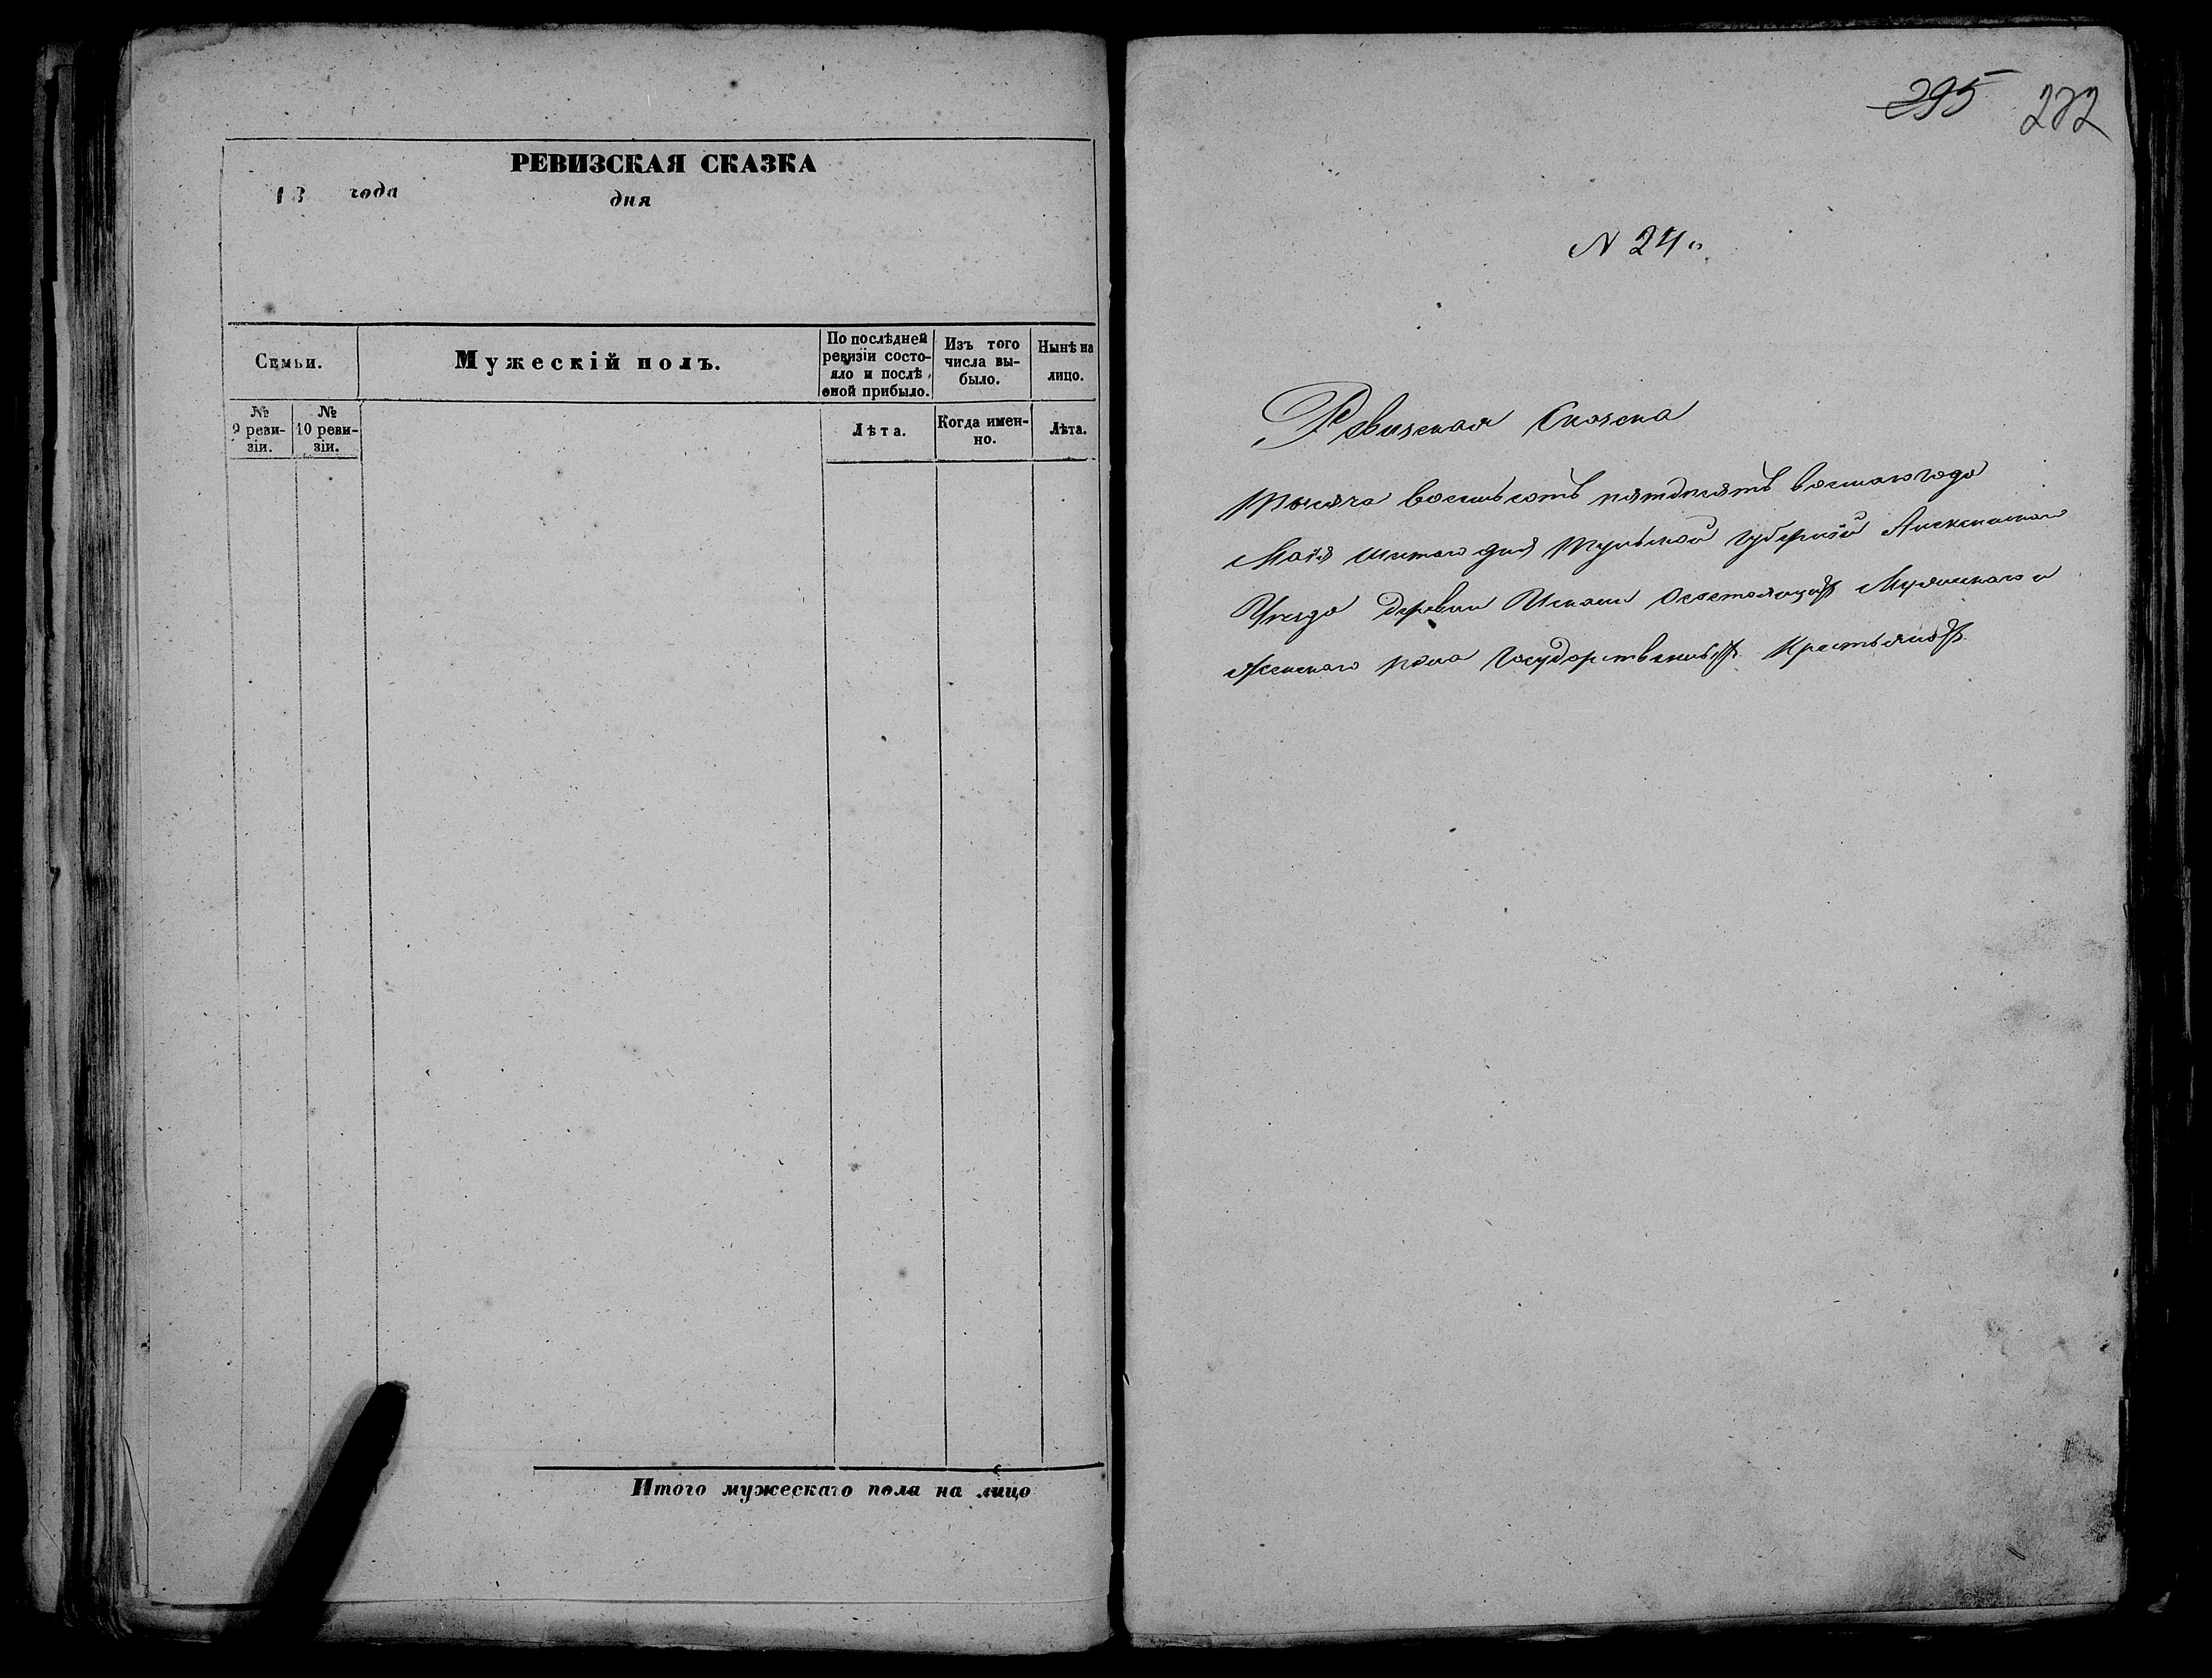 РЕВИЗСКАЯ СКАЗКА
18 года дня
Семьи.
Мужескій полъ.
По послѣдней ревизіи состояло и послѣ оной прибыло.
Изъ того числа выбыло.
Нынѣ на лицо.
№ 9 ревизіи.
№ 10 ревизіи.
Лѣта.
Когда именно.
Лѣта.
Итого мужескаго пола на лицо
295 272
N 24
Ревизская Сказка
Тысяча восемьсотъ пятдесятъ восмаго года
Маія шестаго дня Тульской губерніи Алексинскаго
Уезда деревни состоящихъ Мужескаго и
Женскаго пола Государственныхъ Крестьянахъ